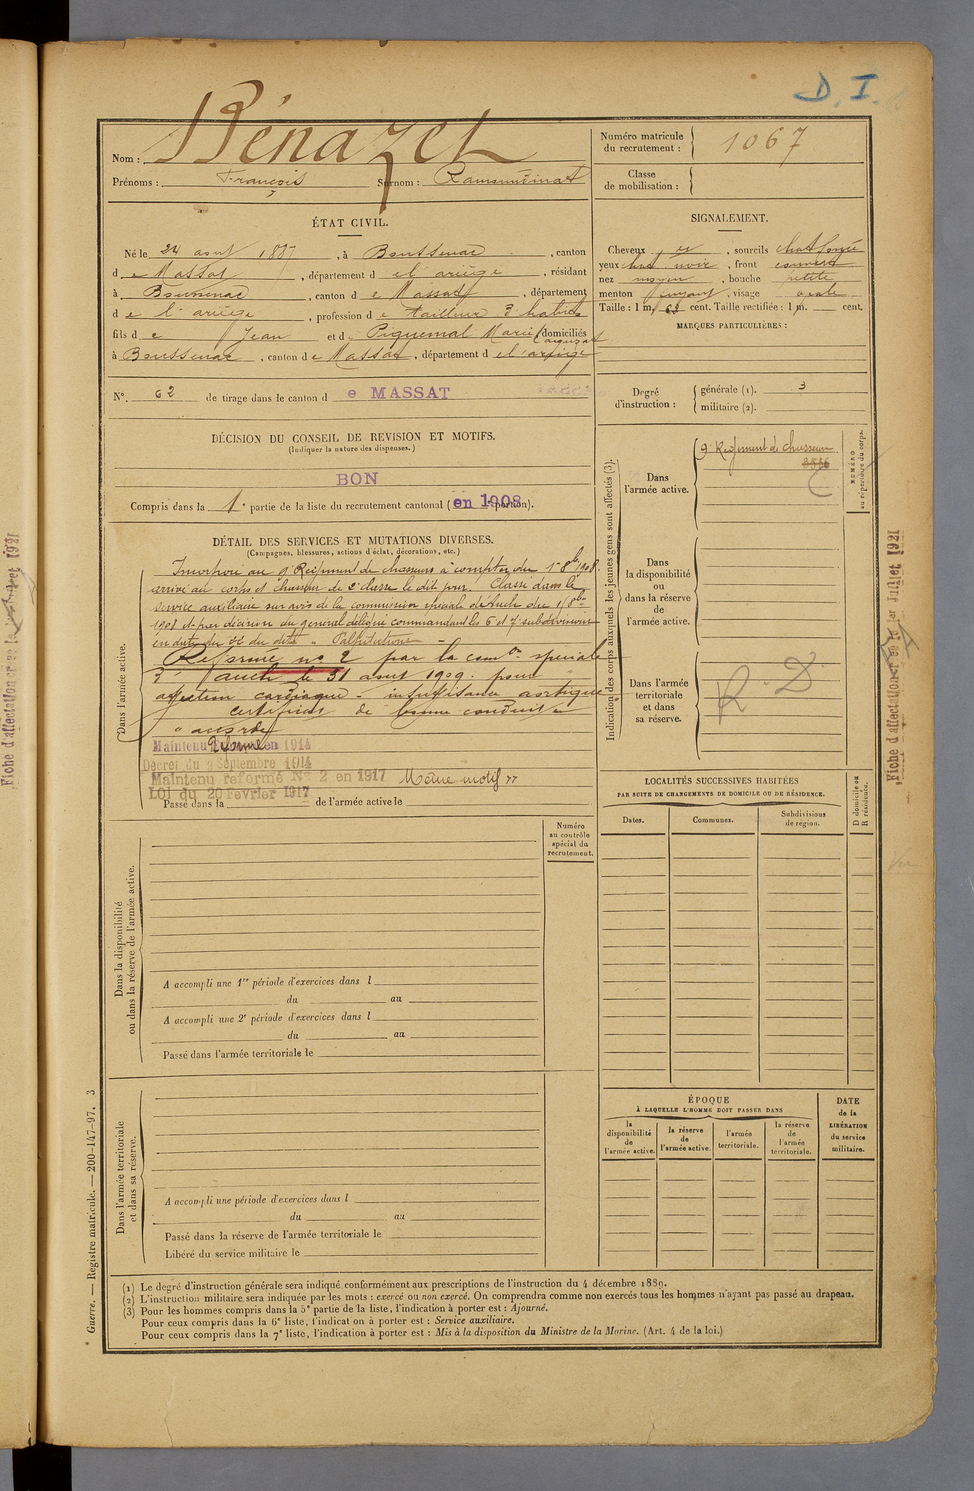 D. I.
Nom : Bénazet
Prénoms : François Surnom : Ramoundinat
Numéro matricule du recrutement : 1067
Classe de mobilisation :
ÉTAT CIVIL.
Né le 24 aout 1887, à Boussenac, canton
de Massat, département de l'ariège, résidant
à Boussenac, canton de Massat, département
de l'ariège, profession de tailleur d'habits
fils de Jean et de Piquemal Marie domiciliés
à Boussenac, canton de Massat, département de l'ariège
SIGNALEMENT.
Cheveux , sourcils
yeux , front couvert
nez moyen, bouche petite
menton fuyant, visage ovale
Taille : 1 m, 63 cent. Taille rectifiée : 1 m. cent.
MARQUES PARTICULIÈRES :
N°. 62 de tirage dans le canton de MASSAT
Degré d'instruction :
générale (1). 3
militaire (2).
DÉCISION DU CONSEIL DE REVISION ET MOTIFS.
(Indiquer la nature des dispenses.)
BON
Compris dans la 1e partie de la liste du recrutement cantonal (en 1908 portion).
DÉTAIL DES SERVICES ET MUTATIONS DIVERSES.
(Campagnes, blessures, actions d'éclat, décorations, etc.)
Dans l'armée active.
Incorporé au 9e Régiment de chasseurs à compter du 1er 8bre 1908.
arrivé au corps et chasseur de 2e classe le dit jour. Classé dans le
service auxiliaire sur avis de la commission spéciale d'Auch du 8bre
1908 et par décision du général délégué commandant les 6 et 7e subdivisions
en date du 22 du dit "Palpitations"
Réformé no 2 par la comon spéciale
d'auch le 31 aout 1909. pour
affection cardiaque - insuffisance aortique
certificat de bonne conduite
"accordé
Maintenu Réformé en 1914
Décret du 9 Septembre 1914
Maintenu réformé N° 2 en 1917 Même motif
LOI du 20 Février 1917
Passé dans la de l'armée active le
Indication des corps auxquels les jeunes gens sont affectés (3).
NUMÉRO au répertoire du corps.
Dans l'armée active.
9e Régiment de chasseurs
Dans la disponibilité ou dans la réserve de l'armée active.
Dans l'armée territoriale et dans sa réserve.
R. D.
Fiche d'affectation er Juillet 1921
Fiche d'affectation Juillet 1921
LOCALITÉS SUCCESSIVES HABITÉES
PAR SUITE DE CHANGEMENTS DE DOMICILE OU DE RÉSIDENCE.
Dates.
Communes.
Subdivisions de région.
D domicile ou R résidence.
Numéro au contrôle spécial du recrutement.
Dans la disponibilité ou dans la réserve de l'armée active.
A accompli une 1re période d'exercices dans l
du au
A accompli une 2e période d'exercices dans l
du au
Passé dans l'armée territoriale le
Dans l'armée territoriale et dans sa réserve.
A accompli une période d'exercices dans l
du au
Passé dans la réserve de l'armée territoriale le
Libéré du service militaire le
ÉPOQUE
À LAQUELLE L'HOMME DOIT PASSER DANS
la disponibilité de l'armée active.
la réserve de l'armée active.
l'armée territoriale.
la réserve de l'armée territoriale.
DATE de la LIBÉRATION du service militaire.
Guerre. — Registre matricule. — 200-147-97. 3
(1) Le degré d'instruction générale sera indiqué conformément aux prescriptions de l'instruction du 4 décembre 1889.
(2) L'instruction militaire sera indiquée par les mots : exercé ou non exercé. On comprendra comme non exercés tous les hommes n'ayant pas passé au drapeau.
(3) Pour les hommes compris dans la 5e partie de la liste, l'indication à porter est : Ajourné.
Pour ceux compris dans la 6e liste, l'indication à porter est : Service auxiliaire.
Pour ceux compris dans la 7e liste, l'indication à porter est : Mis à la disposition du Ministre de la Marine. (Art. 4 de la loi.)